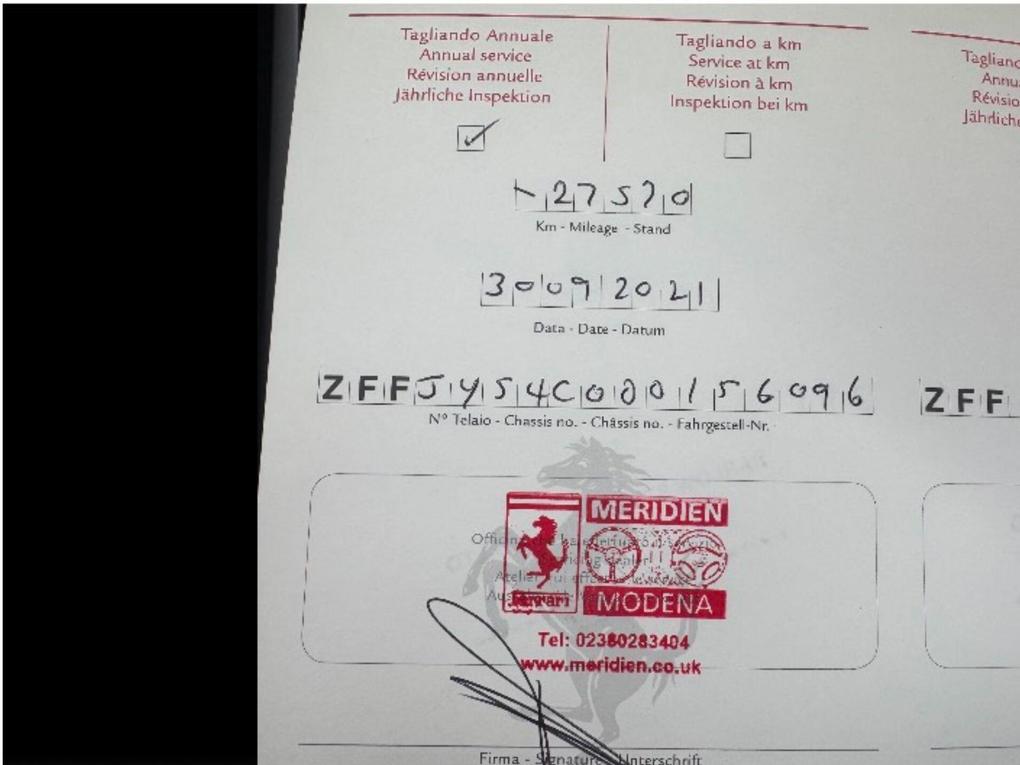 Tagliando Annuale
Annual service
Révision annuelle
Jährliche Inspektion
Tagliando a km
Service at km
Révision à km
Inspektion bei km
27570
Km - Mileage - Stand
30092021
Data - Date - Datum
ZFFJY54C000156096
Nº Telaio - Chassis no. - Châssis no. - Fahrgestell-Nr.
ZFF
MERIDIEN
Ferrari
MODENA
Tel: 02380283404
www.meridien.co.uk
Firma - Signature - Unterschrift